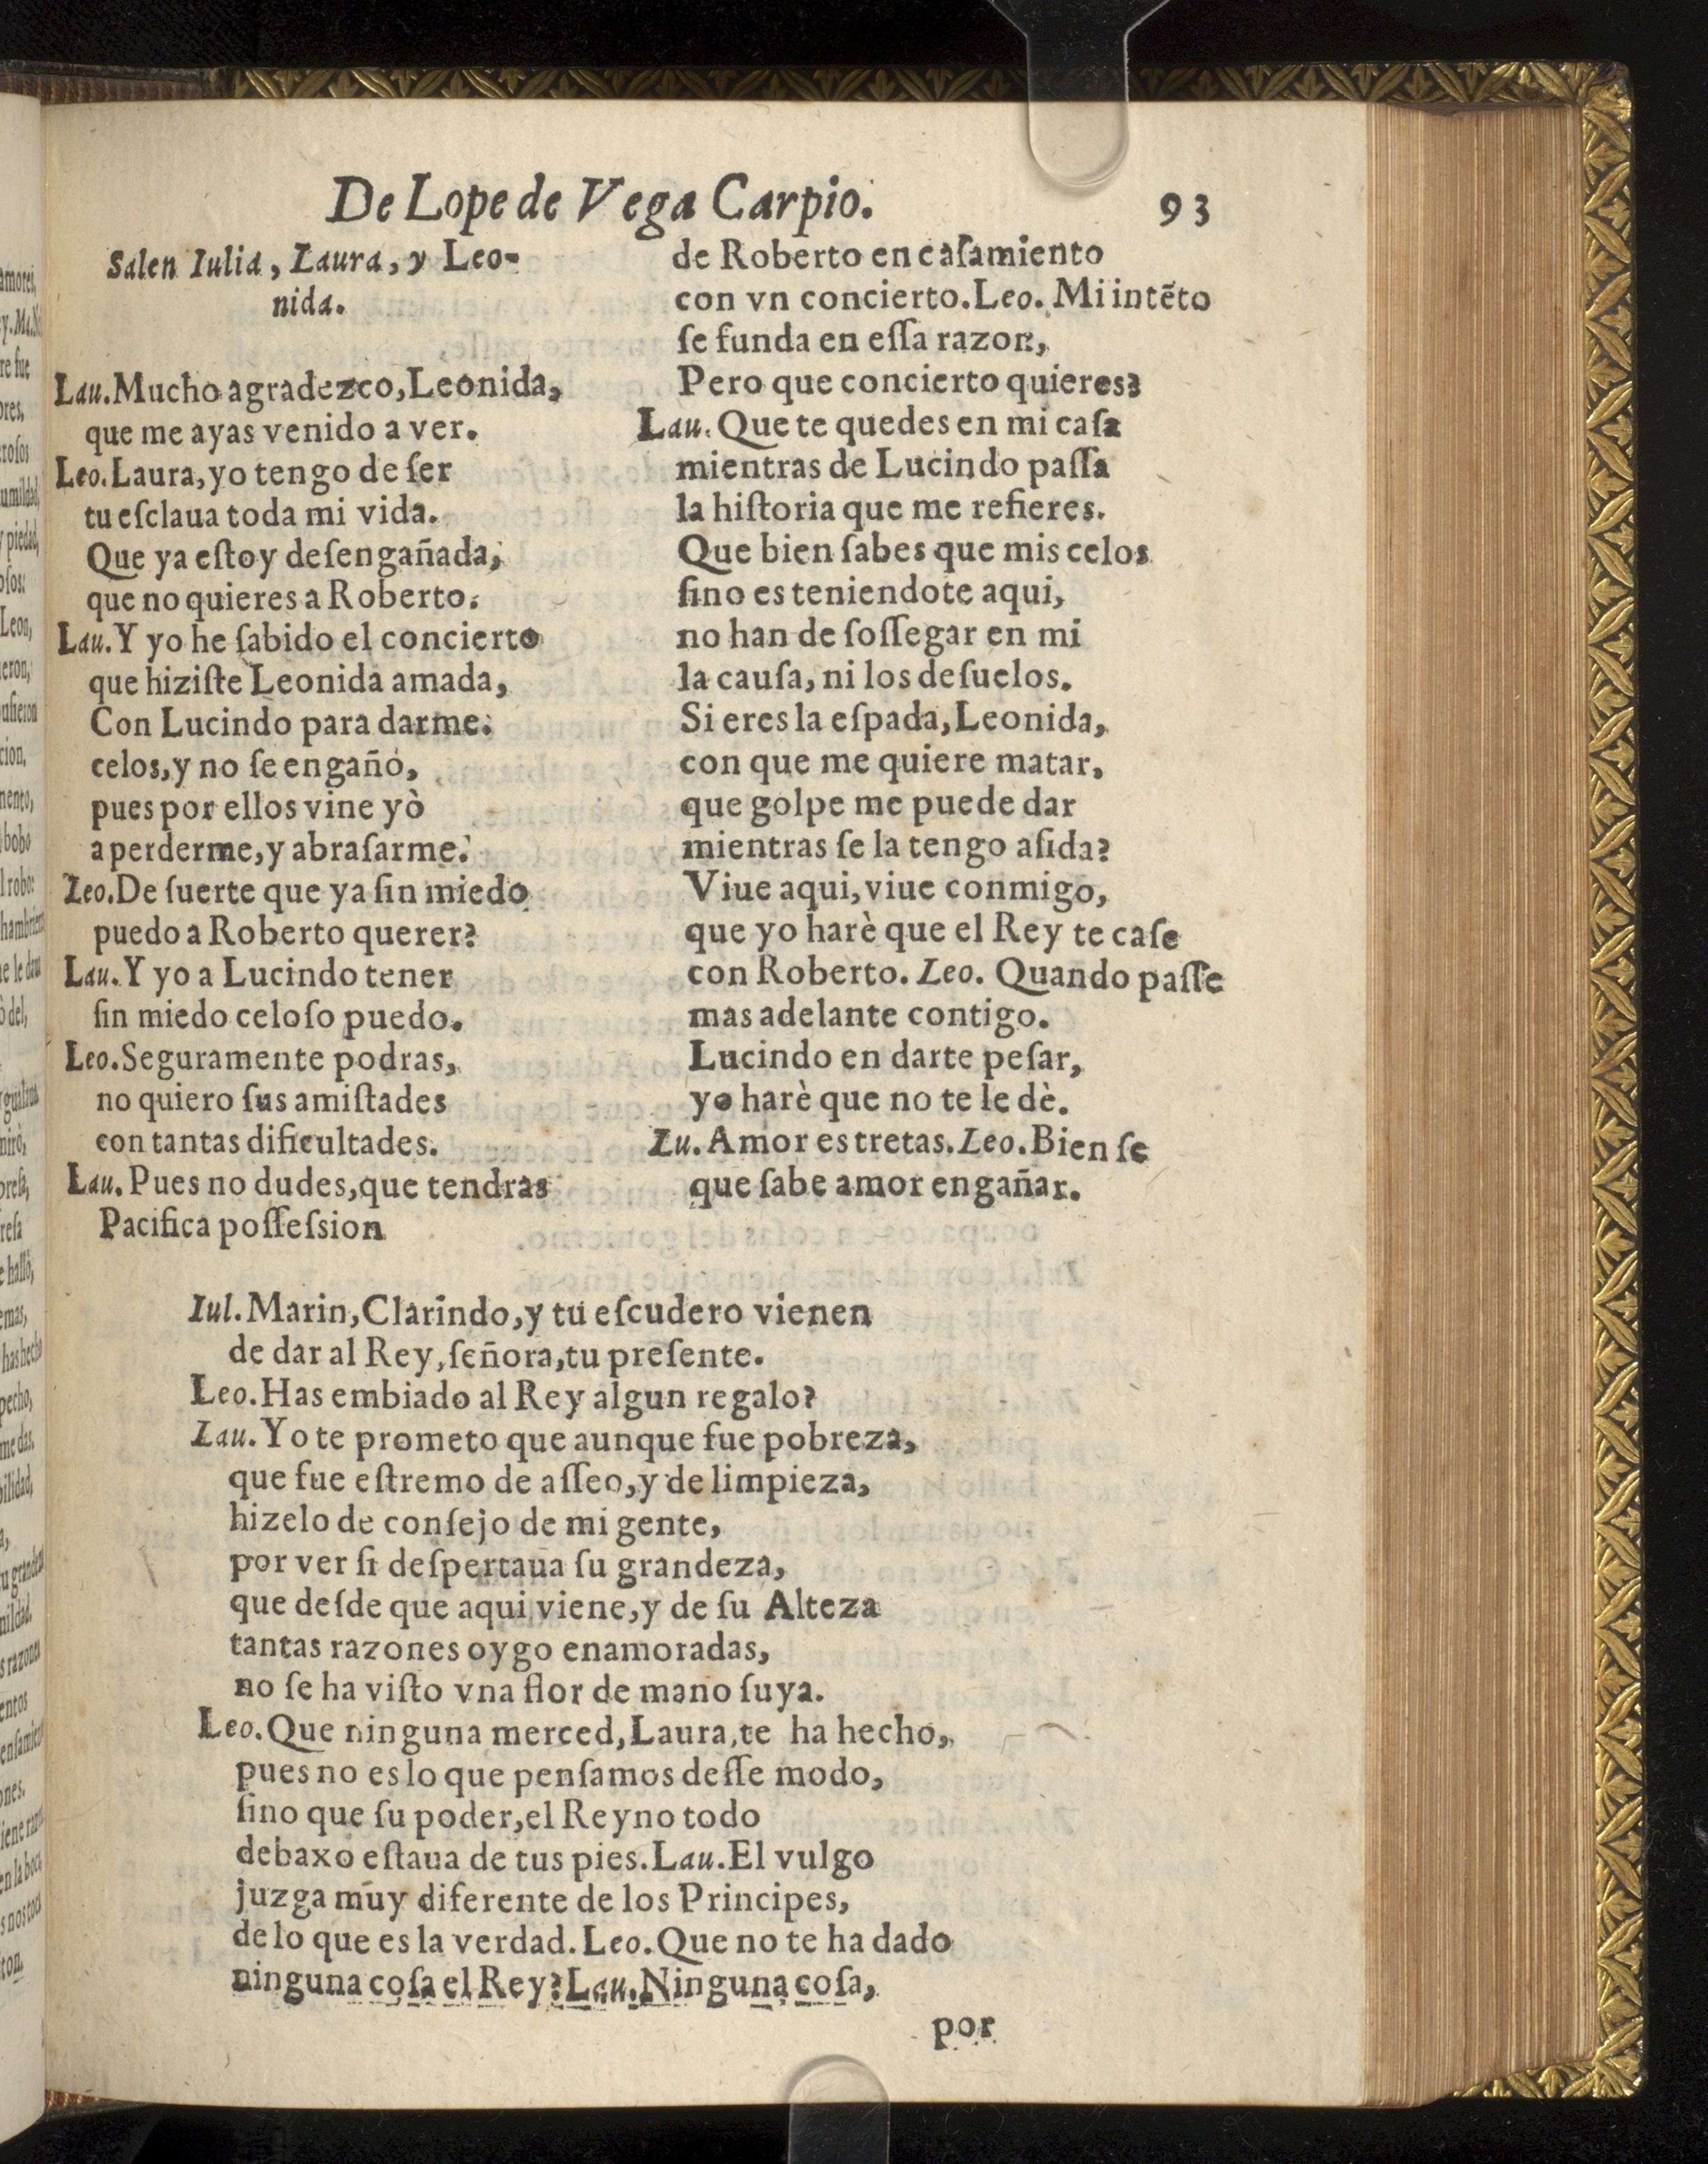 De Lope de Vega Carpio. 93
Salen Iulia, Laura, y Leo-
nida.
Lau. Mucho agradezco, Leonida,
que me ayas venido a ver.
Leo. Laura, yo tengo de ſer
tu eſclaua toda mi vida.
Que ya eſtoy deſengañada,
que no quieres a Roberto.
Lau. Y yo he ſabido el concierto
que hiziſte Leonida amada,
Con Lucindo para darme.
celos, y no ſe engañó,
pues por ellos vine yò
a perderme, y abraſarme.
Leo. De ſuerte que ya ſin miedo
puedo a Roberto querer?
Lau. Y yo a Lucindo tener
ſin miedo celoſo puedo.
Leo. Seguramente podras,
no quiero ſus amiſtades
con tantas dificultades.
Lau. Pues no dudes, que tendras
Pacifica poſſeſsion
de Roberto en caſamiento
con vn concierto. Leo. Mi intẽto
ſe funda en eſſa razon,
Pero que concierto quieres?
Lau. Que te quedes en mi caſa
mientras de Lucindo paſſa
la hiſtoria que me refieres.
Que bien ſabes que mis celos
ſino es teniendote aqui,
no han de ſoſſegar en mi
la cauſa, ni los deſuelos.
Si eres la eſpada, Leonida,
con que me quiere matar,
que golpe me puede dar
mientras ſe la tengo aſida?
Viue aqui, viue conmigo,
que yo harè que el Rey te caſe
con Roberto. Leo. Quando paſſe
mas adelante contigo.
Lucindo en darte peſar,
yo harè que no te le dè.
Lu. Amor es tretas. Leo. Bien ſe
que ſabe amor engañar.
Iul. Marin, Clarindo, y tu eſcudero vienen
de dar al Rey, ſeñora, tu preſente.
Leo. Has embiado al Rey algun regalo?
Lau. Yo te prometo que aunque fue pobreza,
que fue eſtremo de aſſeo, y de limpieza,
hizelo de conſejo de mi gente,
por ver ſi deſpertaua ſu grandeza,
que deſde que aqui viene, y de ſu Alteza
tantas razones oygo enamoradas,
no ſe ha viſto vna flor de mano ſuya.
Leo. Que ninguna merced, Laura, te ha hecho,
pues no es lo que penſamos deſſe modo,
ſino que ſu poder, el Reyno todo
debaxo eſtaua de tus pies. Lau. El vulgo
juzga muy diferente de los Principes,
de lo que es la verdad. Leo. Que no te ha dado
ninguna coſa el Rey? Lau. Ninguna coſa,
por